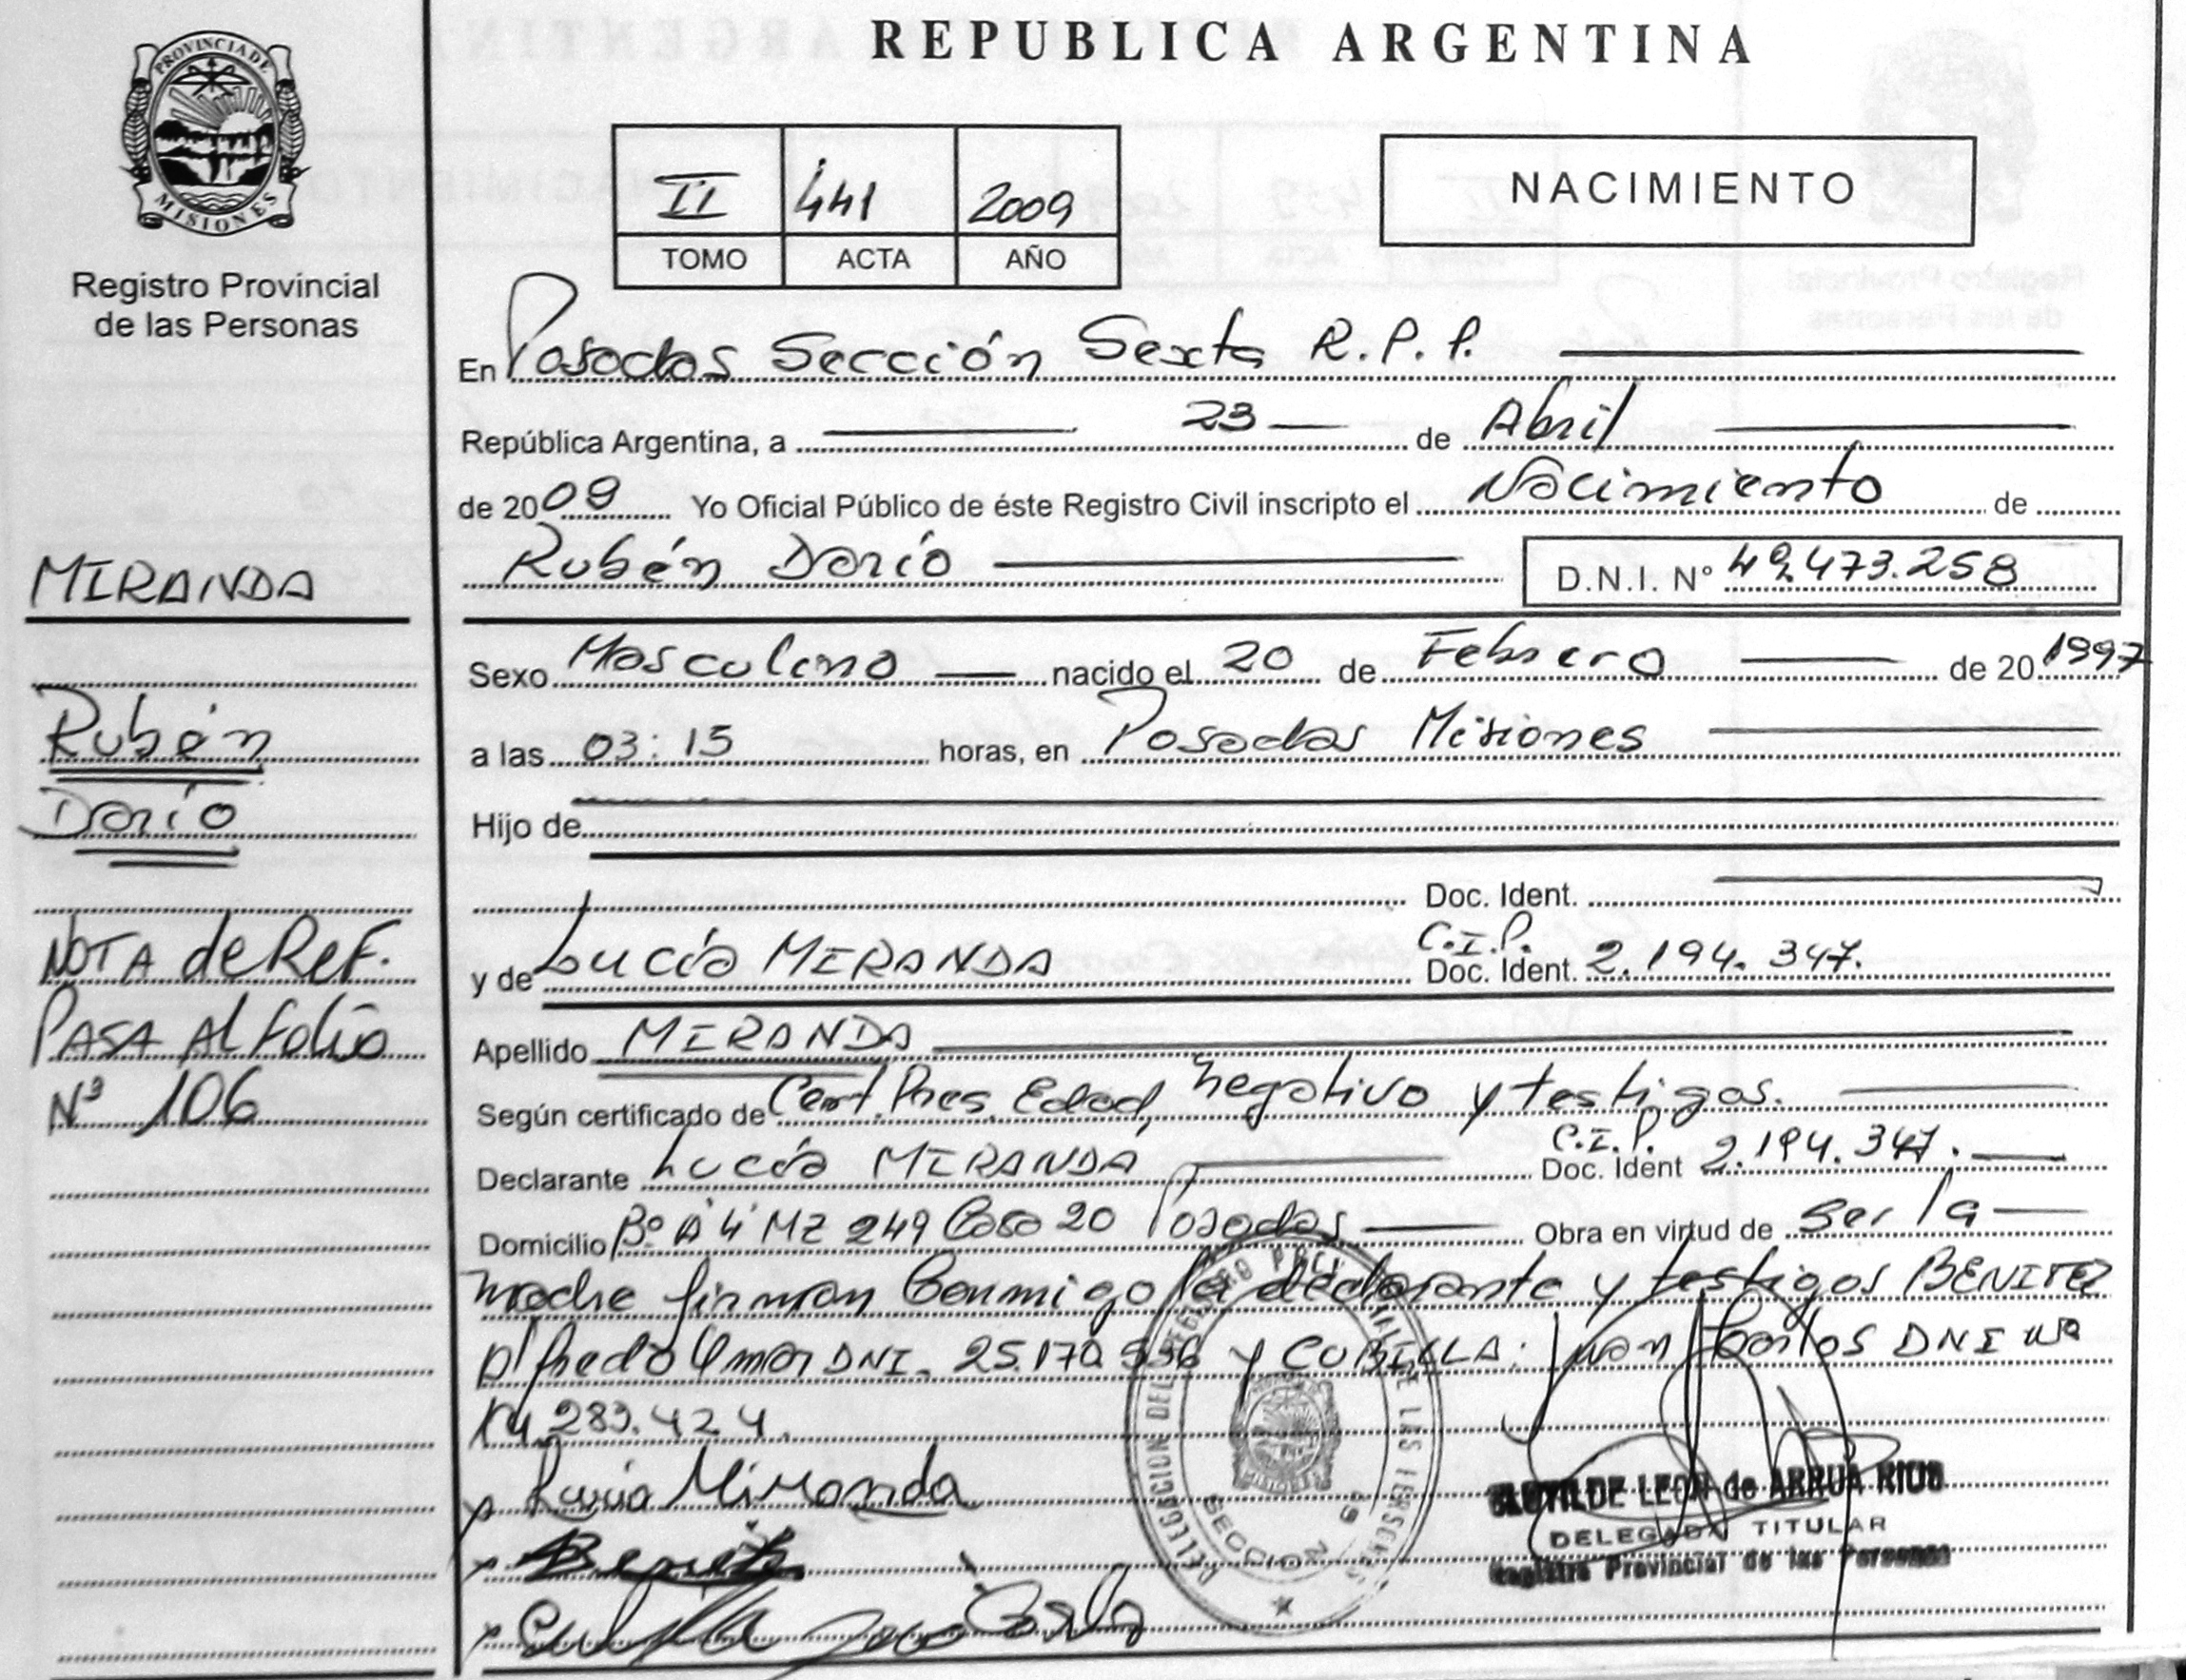 REPUBLICA ARGENTINA
PROVINCIA DE
MISIONES
Registro Provincial
de las Personas
II 441 2009
TOMO ACTA AÑO
NACIMIENTO
En Posadas Sección Sexta R.P.P.
República Argentina, a 23 de Abril
de 2009 Yo Oficial Público de éste Registro Civil inscripto el Nacimiento de
Rubén Darío D.N.I. Nº 49.473.258
MIRANDA
Sexo Masculino nacido el 20 de Febrero de 20 1997
Rubén
a las 03:15 horas, en Posadas Misiones
Darío
Hijo de
Doc. Ident.
NOTA de Ref.
y de Lucía MIRANDA C.I.P. Doc. Ident. 2.194.347.
PASA Al folio
Apellido MIRANDA
Nº 106
Según certificado de Cert. Pres. Edad, negativo y testigos.
Declarante Lucía MIRANDA C.I.P. Doc. Ident 2.194.347.
Domicilio Bº A'4' MZ 249 Casa 20 Posadas Obra en virtud de ser la
madre firman conmigo la declarante y testigos BENITEZ
Alfredo Omar DNI. 25.170.536 y CUBILLA: Juan Carlos DNI Nº
14.283.424.
Lucía Miranda
Benitez
Cubilla Juan Carlos
DELEGACION DEL REGISTRO PROVINCIAL DE LAS PERSONAS
SECCION 6ª
CLOTILDE LEON de ARRUA RIOS
DELEGADA TITULAR
Registro Provincial de las Personas